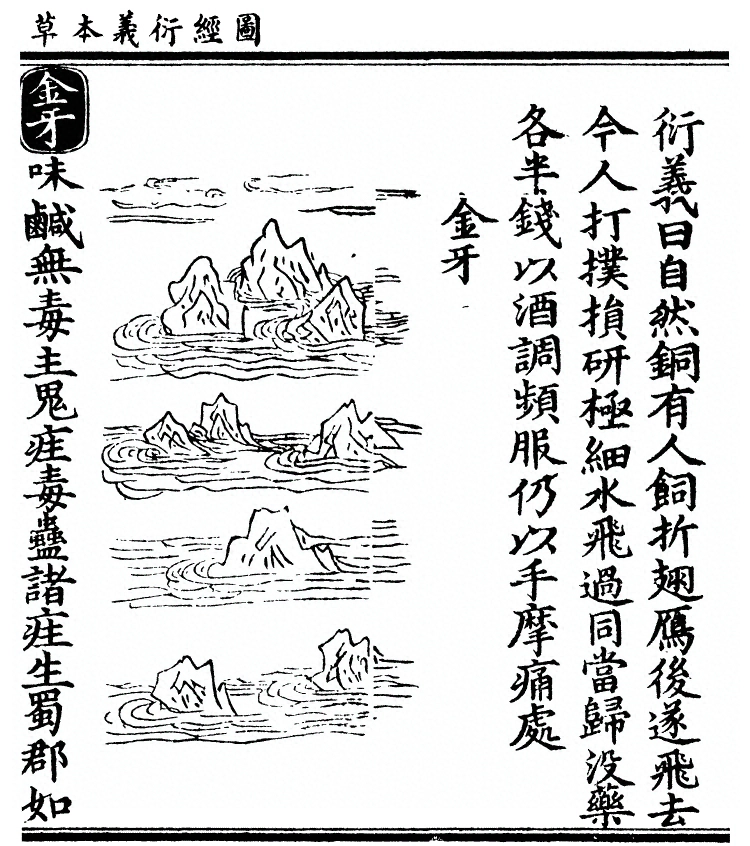 圖經衍義本草
衍義曰自然銅有人飼折翅鴈後遂飛去
今人打撲損研極細水飛過同當歸没藥
各半錢以酒調頻服仍以手摩痛處
金牙
金牙味鹹無毒主鬼疰毒蠱諸疰生蜀郡如